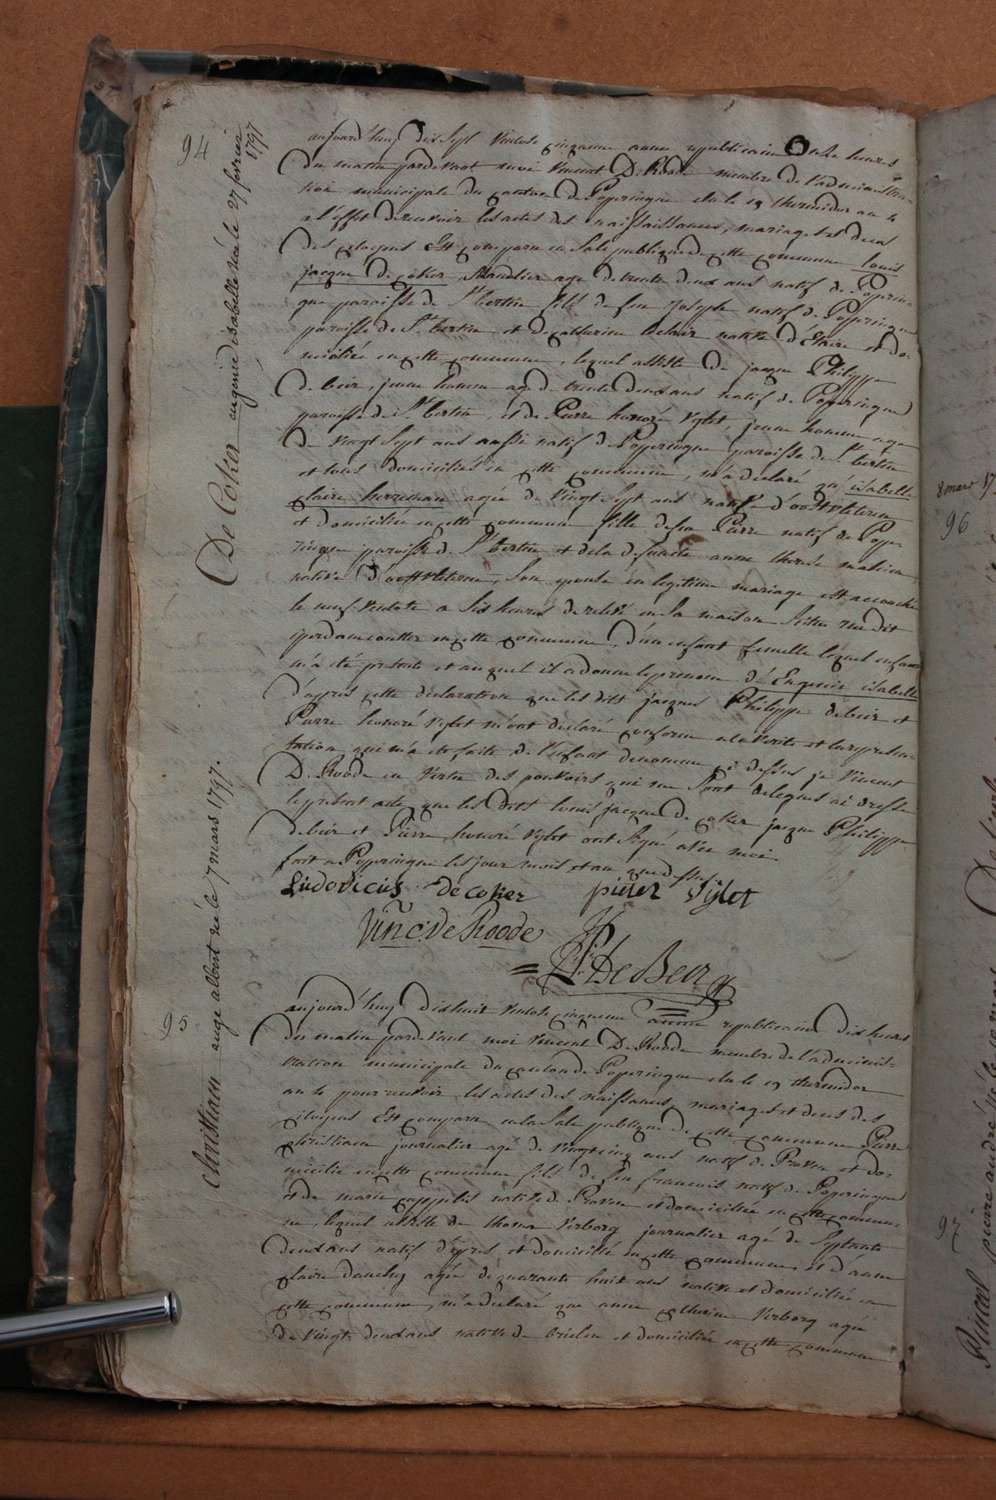 94
De Coker eugenie isabelle née le 27 fevrier 1797
aujourd'huy dix sept ventose cinquieme annee republicaine onze heures
du matin pardevant moi Vincent De Roode membre de l'administra-
tion municipale du canton de Poperingue elu le 19 thermidor an 4
a l'effet de recevoir les actes des naissaissances, mariages et deces
des citoyens Est comparu en sale publique de cette commune louis
jacque De coker age de trente deux ans natif de Poperin-
gue paroisse de St bertin fils de feu Joseph natif de Poperingue
paroisse de St bertin et de catherine native d'Etaire et do-
miciliée en cette commune, lequel assisté de jacque Philippe
de beir, jeune homme agé de trente deux ans natif de Poperingue
paroisse de St bertin, et de Pierre honoré Vylet, jeune homme age
de vingt sept ans aussi natif de Poperingue paroisse de St bertin
et tous domiciliés en cette commune, m'a declaré qu'isabelle
claire herreman agée de vingt sept ans native d'oostvleteren
et domiciliée en cette commune fille de feu Pierre natif de Pope-
ringue paroisse de St bertin et de la defuncte anne therese
native d'oostvleteren, son epouse en legitime mariage est accouchée
le neuf ventose a six heures de relevé en sa maison sitee rue dit
en cette commune, d'un enfant femelle lequel enfant
m'a eté presenté et auquel il a donné le prenom d'Eugenie isabelle
d'apres cette declaration que les dits jacques Philippe debeir et
Pierre honoré Vylet m'ont declaré conforme a la verité et la represen-
tation qui m'a eté faite de l'enfant denommé ci dessus je Vincent
De Roode en vertu des pouvoirs qui me sont delegués ai dressé
le present acte que les dits louis jacque De coker jacque Philippe
debeir et Pierre honoré Vylet ont signé avec moi.
fait a Poperingue les jour mois et an que dessus
Ludovicus decoker pieter Vylet
Vinc: De Roode
P: J: De Beer
95
Christiaen auge albert né le 7 mars 1797.
aujourd'huy dixhuit ventose cinquieme année republicaine dix heures
du matin pardevant moi Vincent De Roode membre de l'adminis-
tration municipale du canton de Poperingue elu le 19 thermidor
an 4 pour recevoir les actes des naissances, mariages et deces des
citoyens Est comparu en la sale publique de cette commune Pierre
christiaen journalier agé de vingt cinq ans natif de Proven et do-
micilié en cette commune fils de feu francois natif de Poperingue
et de marie cappelle native de Proven et domiciliée en cette commu-
ne, lequel assisté de thomas Verborg journalier agé de septante
deux ans natif d'ypres et domicilié en cette commune, et d'anne
claire agée de quarante huit ans native et domiciliée en
cette commune, m'a declaré que anne catherine Verborg agée
de vingt deux ans native de brielen et domiciliée en cette commune
8 mars 17
96
97
Pincel pierre andré né le